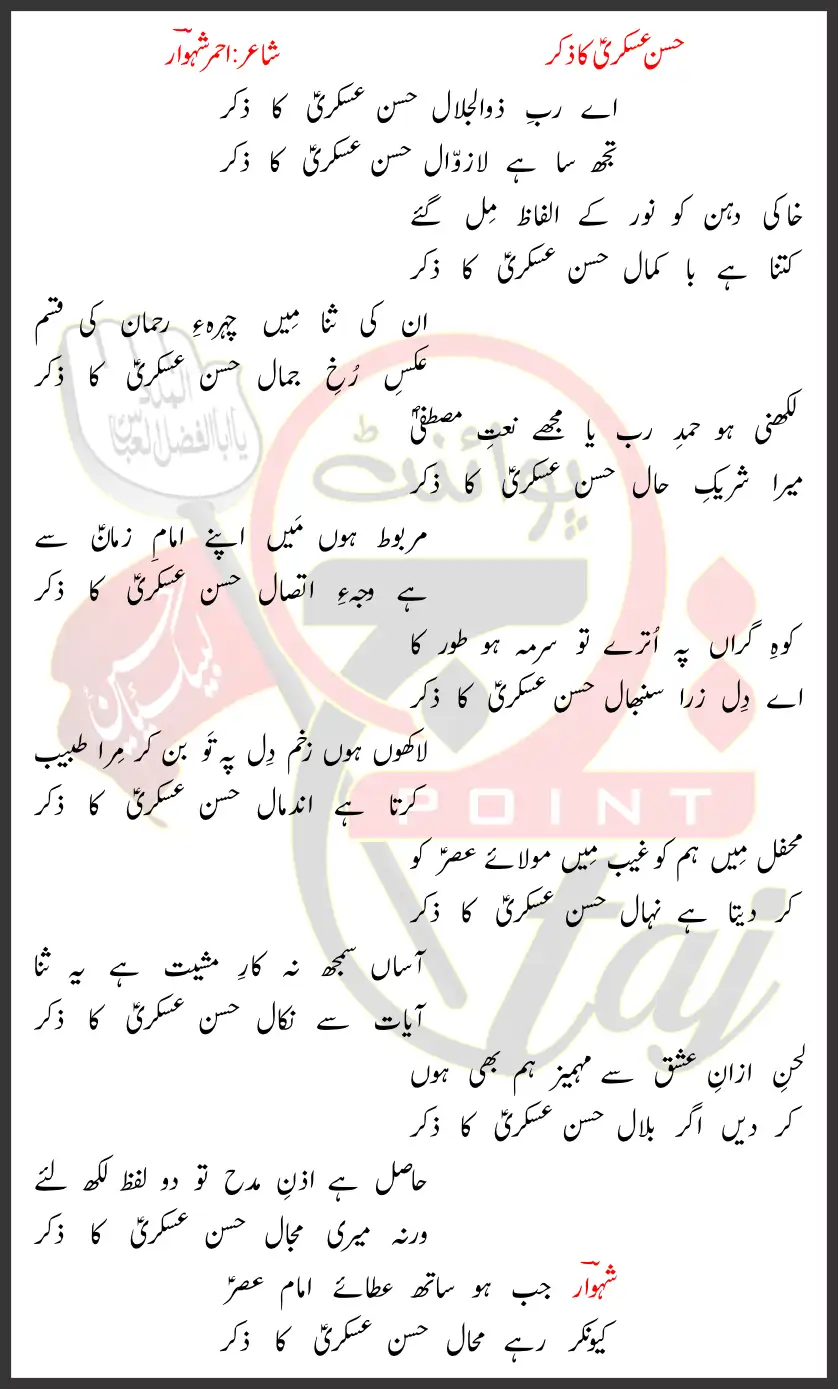 حسن عسکریؑ کا ذکر
شاعر: احمر شہوارؔ
اے ربِ ذوالجلال حسن عسکریؑ کا ذکر
تجھ سا ہے لازوّال حسن عسکریؑ کا ذکر
خاکی دہن کو نور کے الفاظ مِل گئے
کتنا ہے با کمال حسن عسکریؑ کا ذکر
ان کی ثنا مِیں چہرہءِ رحمان کی قسم
عکسِ رُخِ جمال حسن عسکریؑ کا ذکر
لکھنی ہو حمدِ رب یا مجھے نعتِ مصطفیٰؐ
میرا شریکِ حال حسن عسکریؑ کا ذکر
مربوط ہوں مَیں اپنے امامِ زماںؑ سے
ہے وجہءِ اتصال حسن عسکریؑ کا ذکر
کوہِ گراں پہ اُترے تو سرمہ ہو طور کا
اے دِل زرا سنبھال حسن عسکریؑ کا ذکر
لاکھوں ہوں زخم دِل پہ تَو بن کر مِرا طبیب
کرتا ہے اندمال حسن عسکریؑ کا ذکر
محفل مِیں ہم کو غیب مِیں مولائے عصرؑ کو
کر دیتا ہے نہال حسن عسکریؑ کا ذکر
آساں سمجھ نہ کارِ مشیت ہے یہ ثنا
آیات سے نکال حسن عسکریؑ کا ذکر
لحنِ ازانِ عشق سے مہمیز ہم بھی ہوں
کر دیں اگر بلال حسن عسکریؑ کا ذکر
حاصل ہے اذنِ مدح تو دو لفظ لکھ لئے
ورنہ میری مجال حسن عسکریؑ کا ذکر
شہوارؔ جب ہو ساتھ عطائے امام عصرؑ
کیونکر رہے محال حسن عسکریؑ کا ذکر
یا ابا الفضل العباس
لبیک یا حسین
پوائنٹ
POINT
taj